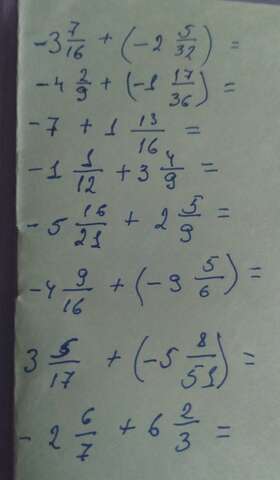 -3 7/16 + (-2 5/32) =
-4 2/9 + (-1 17/36) =
-7 + 1 13/16 =
-1 1/12 + 3 4/9 =
-5 16/21 + 2 5/9 =
-4 9/16 + (-9 5/6) =
3 5/17 + (-5 8/51) =
-2 6/7 + 6 2/3 =